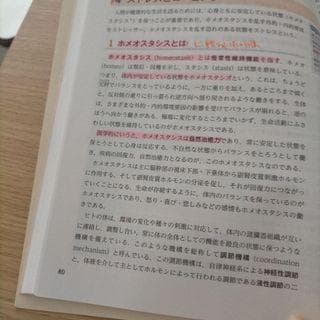 人間が健康的な日常生活を送るには，心身ともに安定している状態（ホメオ
スタシス）を保つことが重要であり，ホメオスタシスを乱す外的・内的要因
をストレッサー，ホメオスタシスを乱す恐れのある状態をストレスという．
1 ホメオスタシスとは
ホメオスタシス（homeostasis）とは恒常性維持機能を指す．ホメオ
（homeo）は類似・同種を示し，スタシス（stasis）は状態を意味している．
つまり，体内が安定している状態をホメオスタシスという．これは，
元に戻る
対でバランスをとっているように，一方に重りを加え，あるところまでいく
と，反対側の重りに引っ張られ逆方向へ戻り戻されるような動きをする．生体
は，さまざまな外的・内的環境要因の影響を受けてバランスが崩れても，逆の
ほうへ向かう働きがある．極端に変化するところまでいかず，生命活動にふさわ
しい状態を維持しているのがホメオスタシスである．
医学的にいうと，ホメオスタシスは自然治癒力であり，常に安定した状態を
保とうとして心身は反応する．不自然な状態からバランスをとろうとして働
き，疾病の回復力，自然治癒力となるのが，このホメオスタシスなのである．
ホメオスタシスは主に脳幹部の視床下部・下垂体から副腎皮質刺激ホルモン
に作用する．そして副腎皮質ホルモンの分泌を促し，それが回復力につながっ
ていくことになる．生命が存続するように，体内のバランスを保っているのが
ホメオスタシスであり，怒り・喜び・悲しみなどの感情もホメオスタシスの働
きである．
ヒト体は，環境の変化や種々の刺激に対して，体内の諸臓器組織が互い
に連絡し，調整し合い，常に体の全体としての機能を最良の状態に保つような
機構を備えている．このような機構を総称して調節機構（coordination
mechanism）と呼んでいる．この調節機構は，自律神経系による神経性調節
と，体液を介して主としてホルモンによって行われる調節である液性調節の二
80